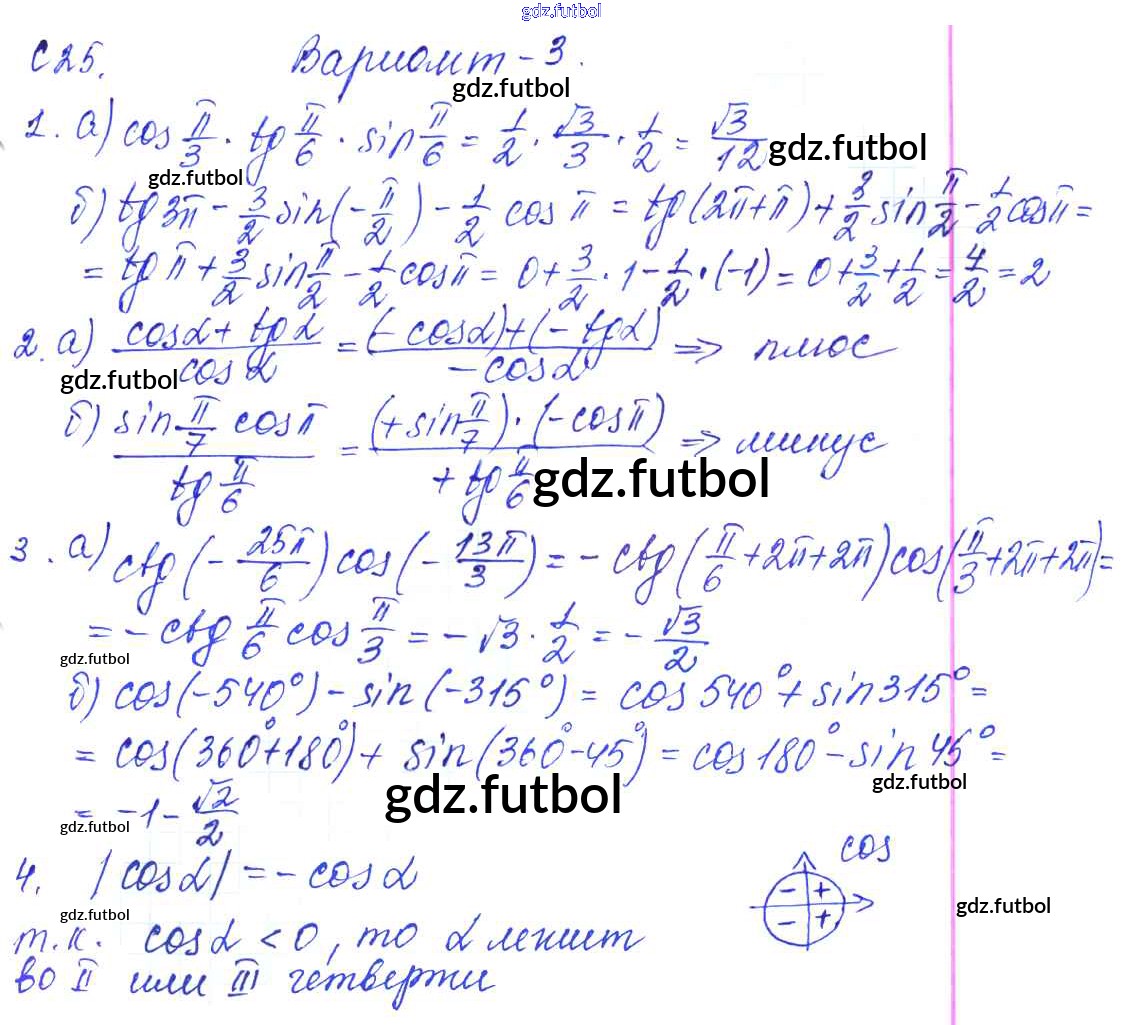 gdz.futbol
С25. Вариант - 3.
gdz.futbol
1. а) cos π/3 · tg π/6 · sin π/6 = 1/2 · √3/3 · 1/2 = √3/12 gdz.futbol
gdz.futbol
б) tg 3π - 3/2 sin(-π/2) - 1/2 cos π = tg(2π+π) + 3/2 sin π/2 - 1/2 cos π =
= tg π + 3/2 sin π/2 - 1/2 cos π = 0 + 3/2 · 1 - 1/2 · (-1) = 0 + 3/2 + 1/2 = 4/2 = 2
2. а) (cos α + tg α)/(cos α) = ((-cos α) + (-tg α))/(-cos α) => плюс
gdz.futbol
б) (sin π/7 cos π)/(tg π/6) = ((+sin π/7) · (-cos π))/(+tg π/6) => минус
gdz.futbol
3. а) ctg(-25π/6) cos(-13π/3) = -ctg(π/6 + 2π + 2π) cos(π/3 + 2π + 2π) =
= -ctg π/6 cos π/3 = -√3 · 1/2 = -√3/2
gdz.futbol
б) cos(-540°) - sin(-315°) = cos 540° + sin 315° =
= cos(360° + 180°) + sin(360° - 45°) = cos 180° - sin 45° =
gdz.futbol gdz.futbol
= -1 - √2/2
gdz.futbol
4. |cos α| = -cos α
cos
- +
- +
gdz.futbol gdz.futbol
т.к. cos α < 0, то α лежит
во II или III четверти